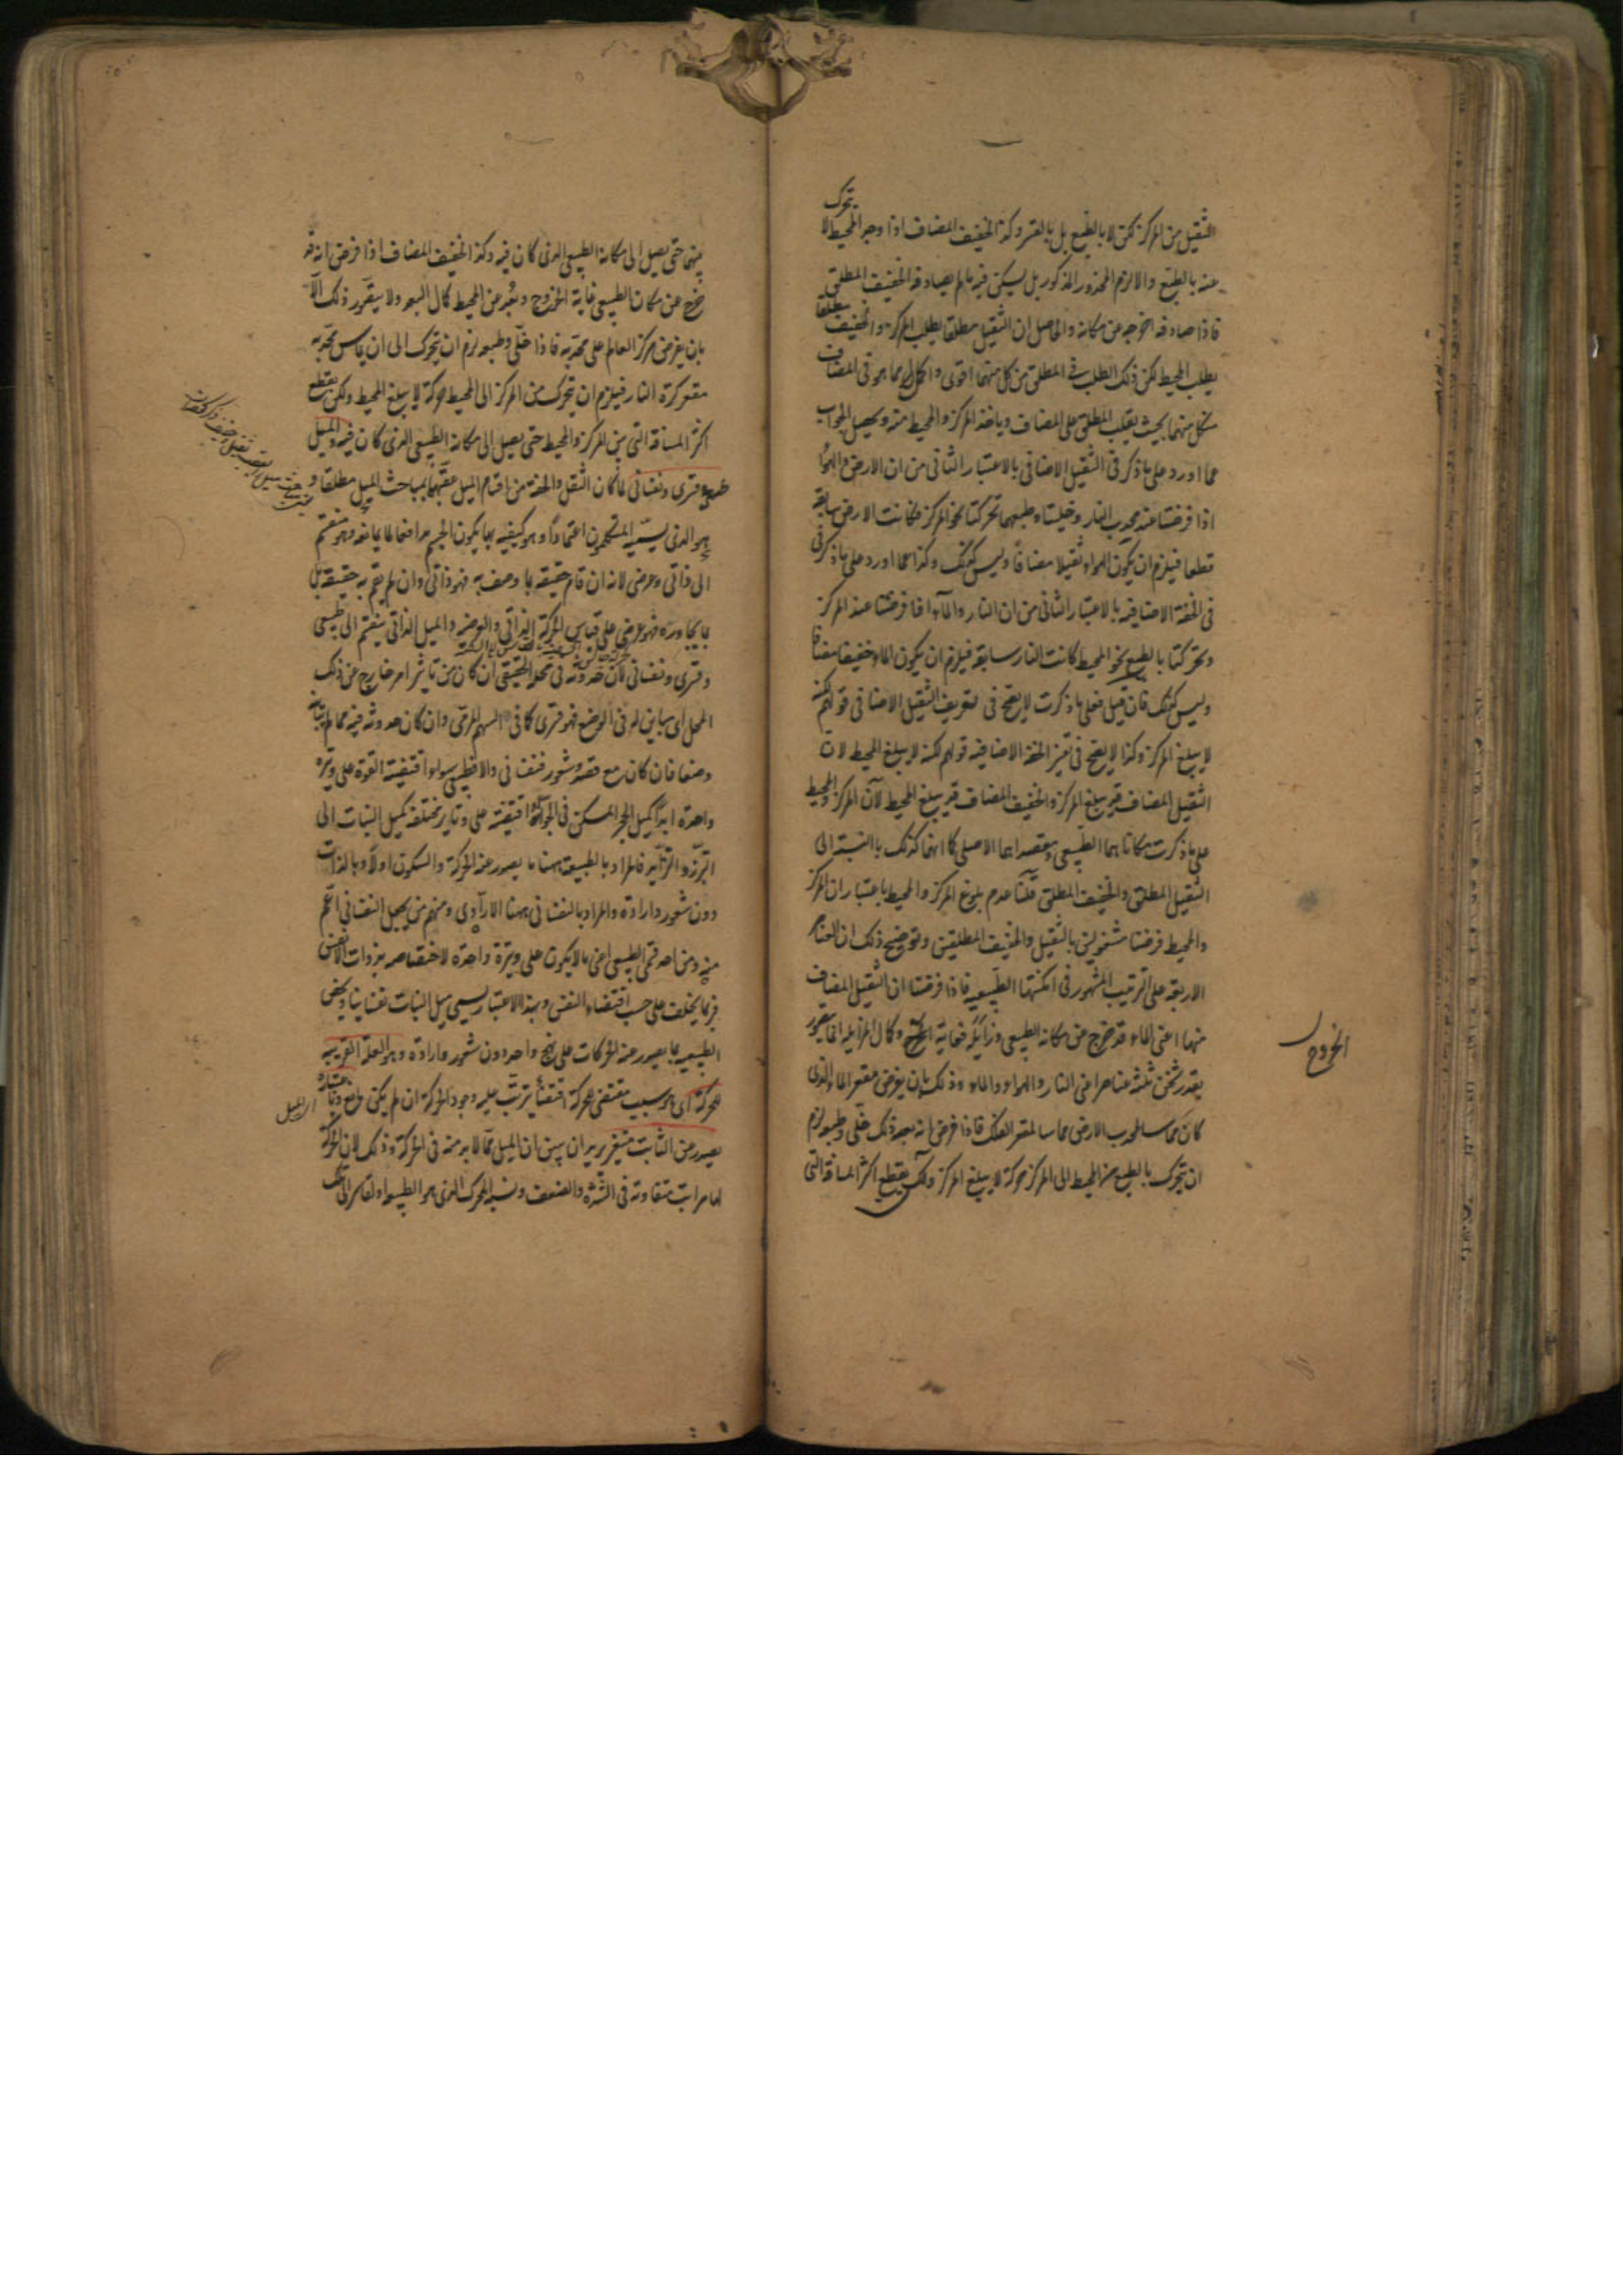 الثقيل من المركز لكن لا بالطبع بل بالقسر وكذا الخفيف المضاف اذا وجد المحيط لا يتحرك
عنه بالطبع والا لزم المحذور المذكور بل يسكن فيه ما لم يصادفه الخفيف المطلق
فاذا صادفه اخرجه عن مكانه والحاصل ان الثقيل مطلقا يطلب المركز والخفيف مطلقا
يطلب المحيط لكن ذلك الطلب في المطلق من كل منهما اقوى واكمل مما هو في المضاف
من كل منهما بحيث يغلب المطلق على المضاف وياخذ المركز والمحيط منه ويحصل الجواب
عما اورد على ما ذكر في الثقيل الاضافي بالاعتبار الثاني من ان الارض والهواء
اذا فرضتا عند محدب النار وخليتا وطبعهما تحركتا نحو المركز وكانت الارض سابقة
قطعا فيلزم ان يكون الهواء ثقيلا مضافا وليس كذلك وكذا عما اورد على ما ذكر في
في الخفة الاضافية بالاعتبار الثاني من ان النار والماء اذا فرضتا عند المركز
وتحركتا بالطبع نحو المحيط كانت النار سابقة فيلزم ان يكون الماء خفيفا مضافا
وليس كذلك فان قيل فعلى ما ذكرت لا يصح في تعريف الثقيل الاضافي قولهم لكنه
لا يبلغ المركز وكذا لا يصح في تفسير الخفة الاضافية قولهم لكنه لا يبلغ المحيط لان
الثقيل المضاف قد يبلغ المركز والخفيف المضاف قد يبلغ المحيط لان المركز والمحيط
على ما ذكرت مكاناهما الطبيعي ومقصداهما الاصلي كما انهما كذلك بالنسبة الى
الثقيل المطلق والخفيف المطلق قلنا عدم بلوغ المركز والمحيط باعتبار ان المركز
والمحيط فرضتا مشغولين بالثقيل والخفيف المطلقين وتوضيح ذلك ان العناصر
الاربعة على الترتيب المشهور في امكنتها الطبيعية فاذا فرضنا ان الثقيل المضاف
منها اعني الماء قد خرج من مكانه الطبيعي وزايله غاية الخروج وكمال المزايلة انما يتصور
بقدر ثخن ثلثة عناصر اعني النار والهواء والماء وذلك بان يفرض مقعر الماء الذي
كان مماسا لمحدب الارض مماسا لمقعر الفلك فاذا فرض انه بعد ذلك خلي وطبعه لزم
ان يتحرك بالطبع من المحيط الى المركز حركة لا يبلغ المركز ولكن يقطع اكثر المسافة التي
الخروج
بينهما حتى يصل الى مكانه الطبيعي الذي كان فيه وكذا الخفيف المضاف اذا فرض انه قد
خرج عن مكان الطبيعي غاية الخروج وبعد عن المحيط كمال البعد ولا يتصور ذلك الا
بان يفرض مركز العالم على محدبه فاذا خلي وطبعه لزم ان يتحرك الى ان يماس محدبه
مقعر كرة النار فيلزم ان يتحرك من المركز الى المحيط حركة لا يبلغ المحيط ولكن يقطع
اكثر المسافة التي بين المركز والمحيط حتى يصل الى مكانه الطبيعي الذي كان فيه والميل
طبيعي وقسري ونفساني لما كان الثقل والخفة من اقسام الميل عقبهما بمباحث الميل مطلقا و
هو الذي يسميه المتكلمون اعتمادا وهو كيفية بها يكون الجسم مدافعا لما يمانعه وهو منقسم
الى ذاتي وعرضي لانه ان قام حقيقة بما وصف به فهو ذاتي وان لم يقم به حقيقة بل
بما يجاوره فهو عرضي على قياس الحركة الذاتي والعرضية والميل الذاتي ينقسم الى طبيعي
وقسري ونفساني لان حدوثه في محله الحقيقي ان كان من تاثير امر خارج عن ذلك
المحل اي مباين له في الوضع فهو قسري كما في السهم المرمي وان كان حدوثه فيه مما لم يباينه
وضعا فان كان مع قصد وشعور فنفساني والا فطبيعي سواء اقتضته القوة على وتيرة
واحدة ابدا كميل الحجر المسكن في الجو او اقتضته على وتاير مختلفة كميل النبات الى
التبرز والتزايد فالمراد بالطبيعة ههنا ما يصدر عنه الحركة والسكون اولا وبالذات
دون شعور وارادة والمراد بالنفساني ههنا الارادي ومنهم من يجعل النفساني اعم
منه ومن احد قسمي الطبيعي اعني ما لا يكون على وتيرة واحدة لاختصاصه بذوات الانفس
فربما يختلف على حسب اقتضاء النفس وبهذا الاعتبار يسمى ميل النبات نفسانيا ويخص
الطبيعية بما يصدر عنه الحركات على نهج واحد دون شعور وارادة وهو العلة القريبة
للحركة اي هو سبب مقتضى للحركة اقتضاء يترتب عليه وجود الحركة ان لم يكن مانع وباعتباره
يصدر عن الثابت متغير يريد ان يبين ان الميل مما لا بد منه في الحركة وذلك لان الحركة
لها مراتب متفاوتة في الشدة والضعف ونسبة المحرك الذي هو الطبيعة او القاسر الى تلك
اي الميل